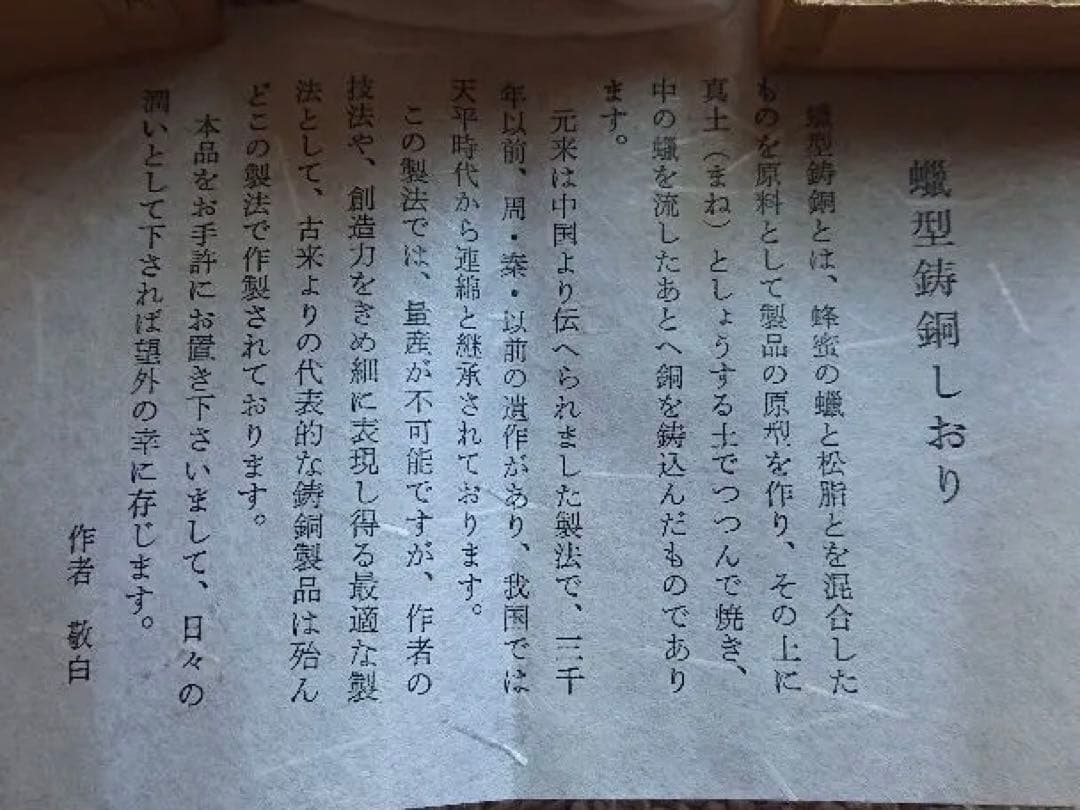 蠟型鋳銅しおり
蠟型鋳銅とは、蜂蜜の蠟と松脂とを混合した
ものを原料として製品の原型を作り、その上に
真土（まね）としょうする土でつつんで焼き、
中の蠟を流したあとへ銅を鋳込んだものであり
ます。
元来は中国より伝へられました製法で、三千
年以前、周・秦・以前の遺作があり、我国では
天平時代から連綿と継承されております。
この製法では、量産が不可能ですが、作者の
技法や、創造力をきめ細に表現し得る最適な製
法として、古来よりの代表的な鋳銅製品は殆ん
どこの製法で作製されております。
本品をお手許にお置き下さいまして、日々の
潤いとして下されば望外の幸に存じます。
作者　敬白